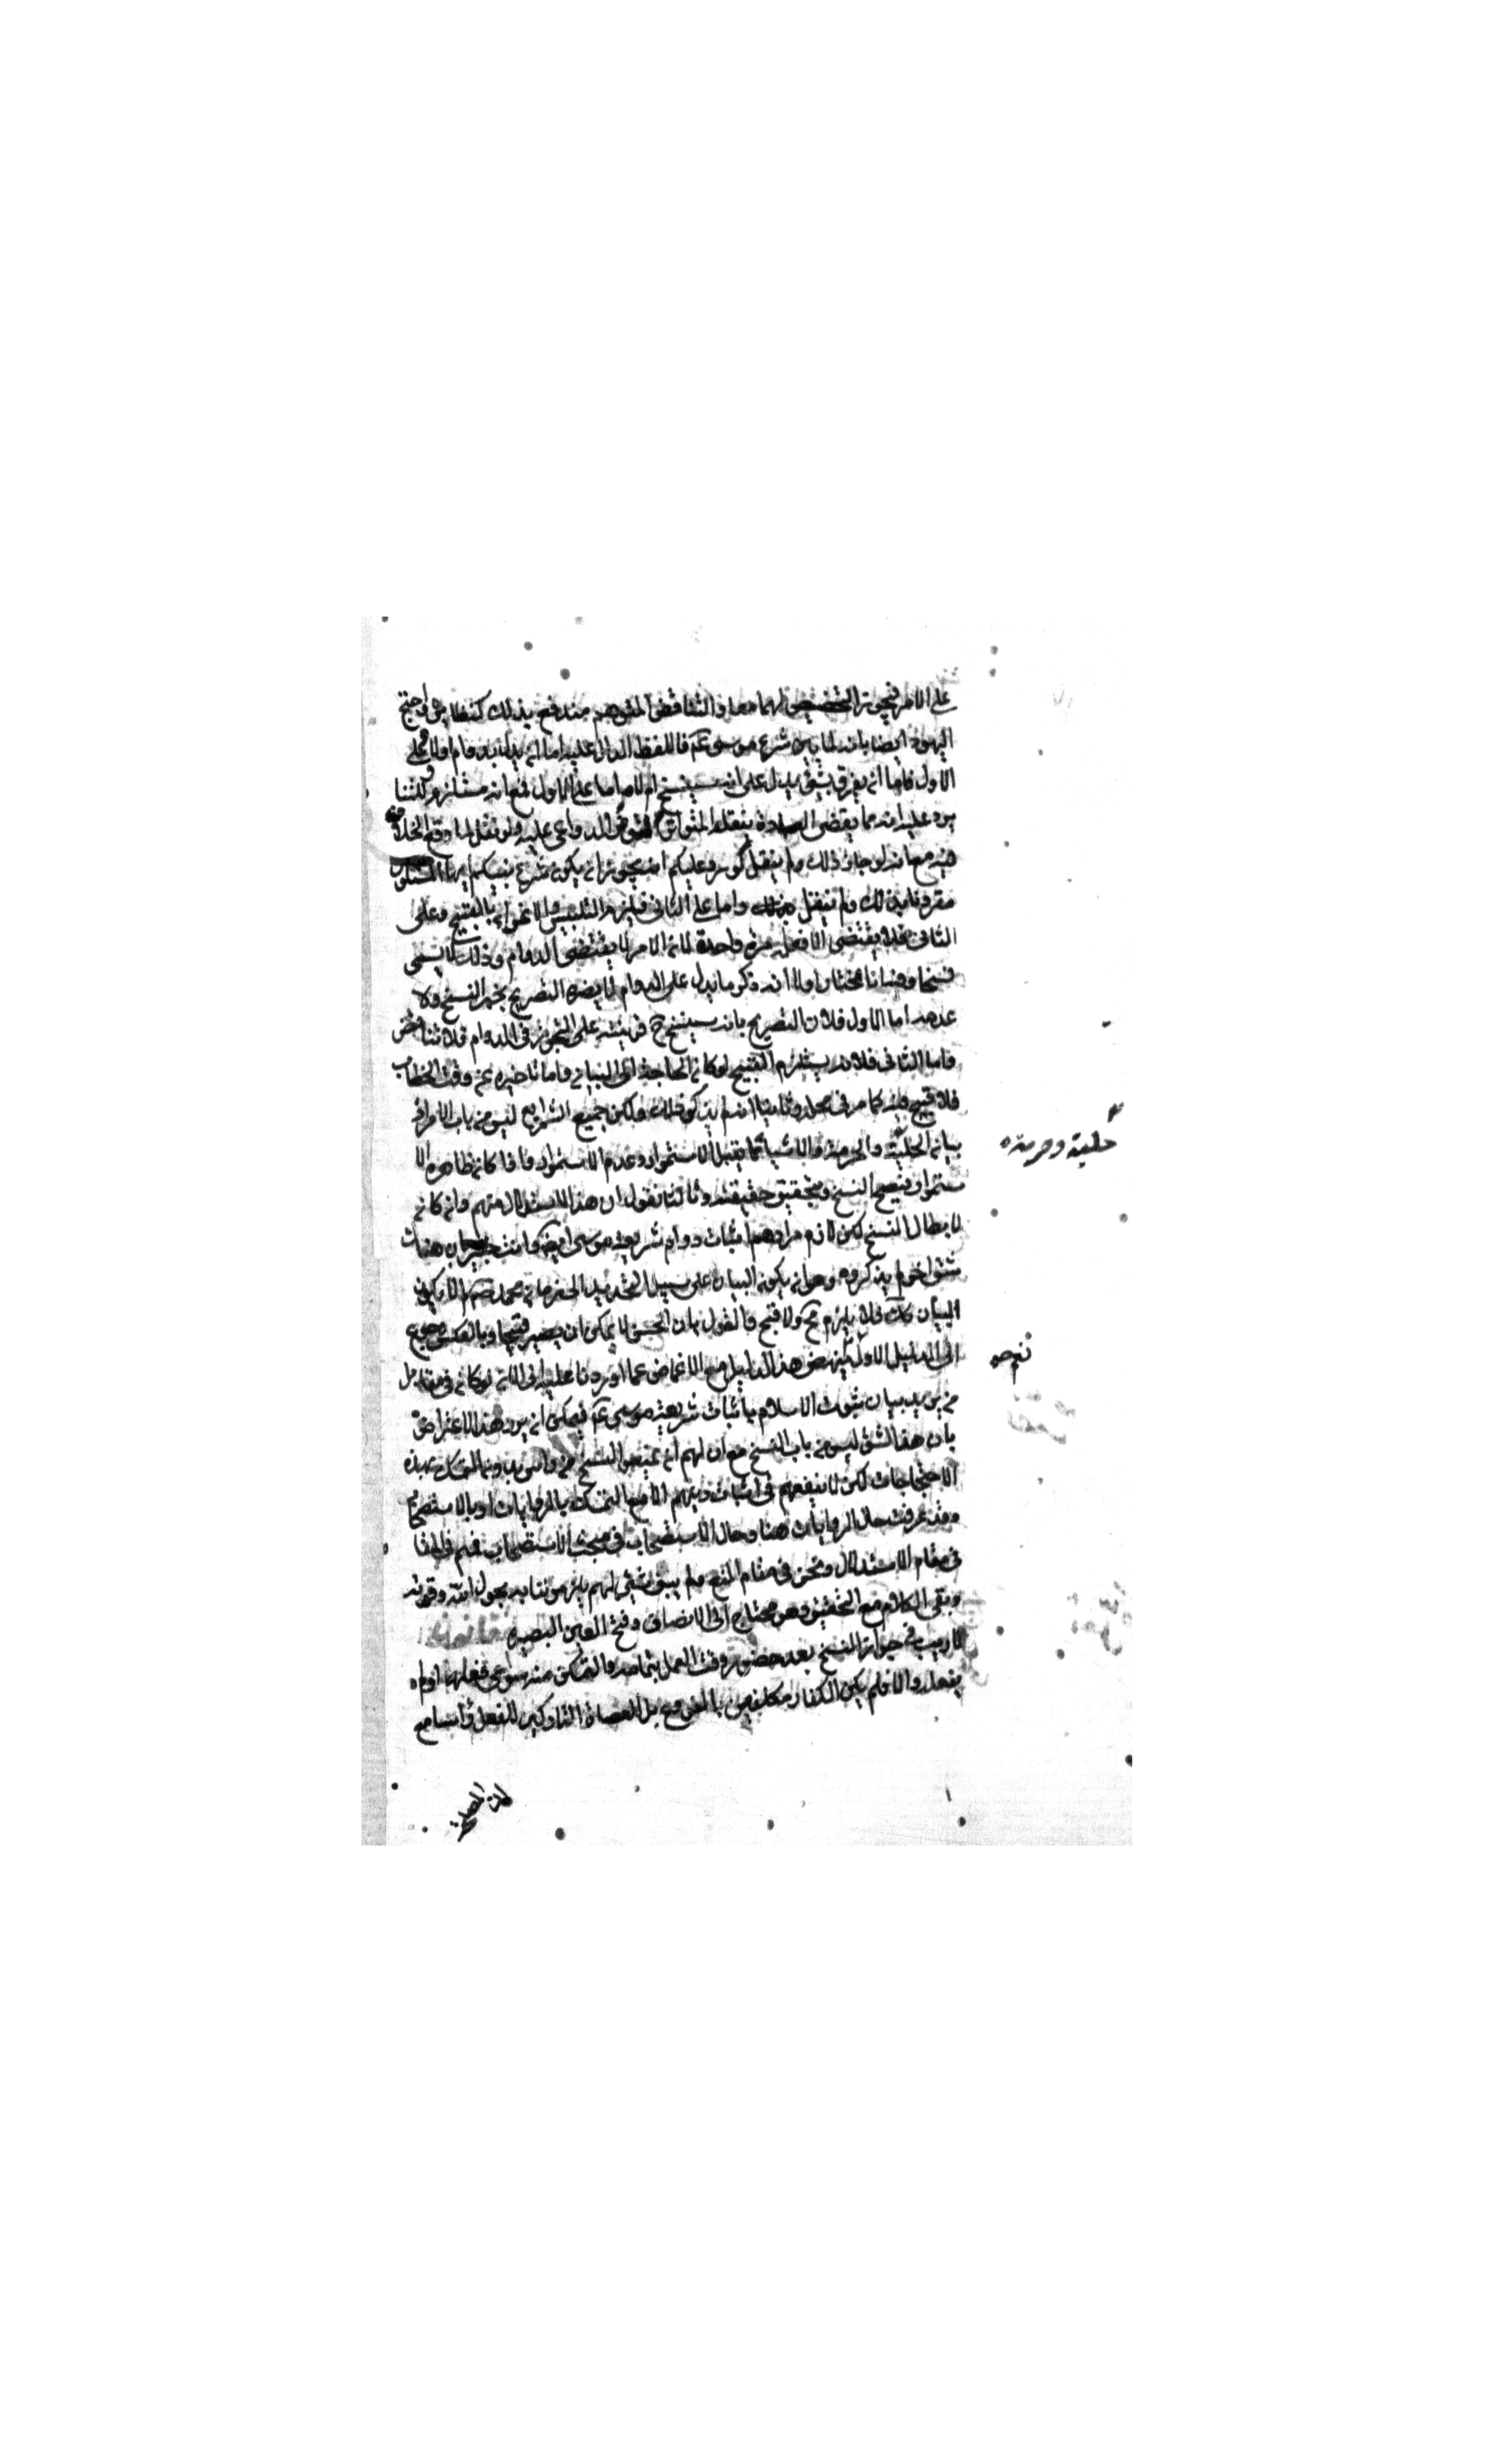 على الامر فيجوز التخصيص لهما معا والتناقض المتوهم مندفع بذلك كنظايره واحتج
اليهود ايضا بانه لما بين شرع موسى ع م فاللفظ الدال عليه اما ان يدل بدوام اولا فعلى
الاول فاما ان يقرن بشئ يدل على انه سينسخ ام لا اما على الاول فمع انه مستلزم
يرد عليه انه مما يقضى العادة بنقله المتواتر لتوفر الدواعى عليه ولو نقل لما وقع الخلاف
فيه مع انه لو جاز ذلك ولم ينقل لورد عليكم انه يجوز ان يكون شرع نبيكم ايها المسلمون
مقرونا بذلك ولم ينقل واما على الثانى فيلزم التلبيس والاغراء بالقبيح وعلى
الثانى فلا يقتضى الا فعله مرة واحدة لان الامر لا يقتضى الدوام وذلك لا يسمى
نسخا وهنا نختار اولا انه ذكر ما يدل على الدوام لا يضره التصريح بخبر النسخ ولا
عدمه اما الاول فلان التصريح بانه سينسخ ح قرينة على التجوز فى الدوام فلا تناقض
واما الثانى فلانه يستلزم القبيح لو كان الحاجة الى البيان واما تاخيره عن وقت الخطاب
فلا قبح فيه كما مر فى محله وثانيا انه لم يذكر ذلك ولكن جميع الشرايع ليس من باب الامر
بيان الحلية والحرمة والاشياء مما يقبل الاستمرار وعدم الاستمرار واذا كان ظاهره الا
ستمرار فيصح النسخ ويتحقق حقيقته وثالثا نقول ان هذا الاستدلال منهم وان كان
لابطال النسخ لكن لازم مرادهم اثبات دوام شريعة موسى ايضا وانت خبير بان هناك
شق اخر لم يذكروه وهو ان يكون البيان على سبيل التحديد الى زمان محمد ص م اذا يكون
البيان كك فلا يلزم مح ولا قبح والقول بان الحسن لا يمكن ان يصير قبيحا وبالعكس رجوع
الى الدليل الاول نعم ينهض هذا الدليل مع الاغماض عما اوردنا عليه الى الان لو كان فى مقابل
من يريد بيان ثبوت الاسلام باثبات شريعة موسى ع م فيمكن ان يرد هذا الاعتراض
بان هذا الشق ليس من باب النسخ مع ان لهم ان يمنعوا النسخ من راس بدون التمسك بهذه
الاحتجاجات لكن لا ينفعهم فى اثبات دينهم الا مع التمسك بالروايات او بالاستصحاب
وقد عرفت حال الروايات هنا وحال الاستصحاب فى مبحث الاستصحاب فهم
فى مقام الاستدلال ونحن فى مقام المنع ولم يبق شئ لهم يلزموننا به بحول الله وقوته
وبقى الكلام مع المحققين وهو محتاج الى الانصاف وفتح العين البصيرة قانون
لا ريب فى جواز النسخ بعد حضور وقت العمل بتمامه والتمكن منه سواء فعله او لم
يفعله والا فلم يكن الكفار مكلفين بالفروع بل العصاة التاركين للفعل
حلية وحرمة
نعم